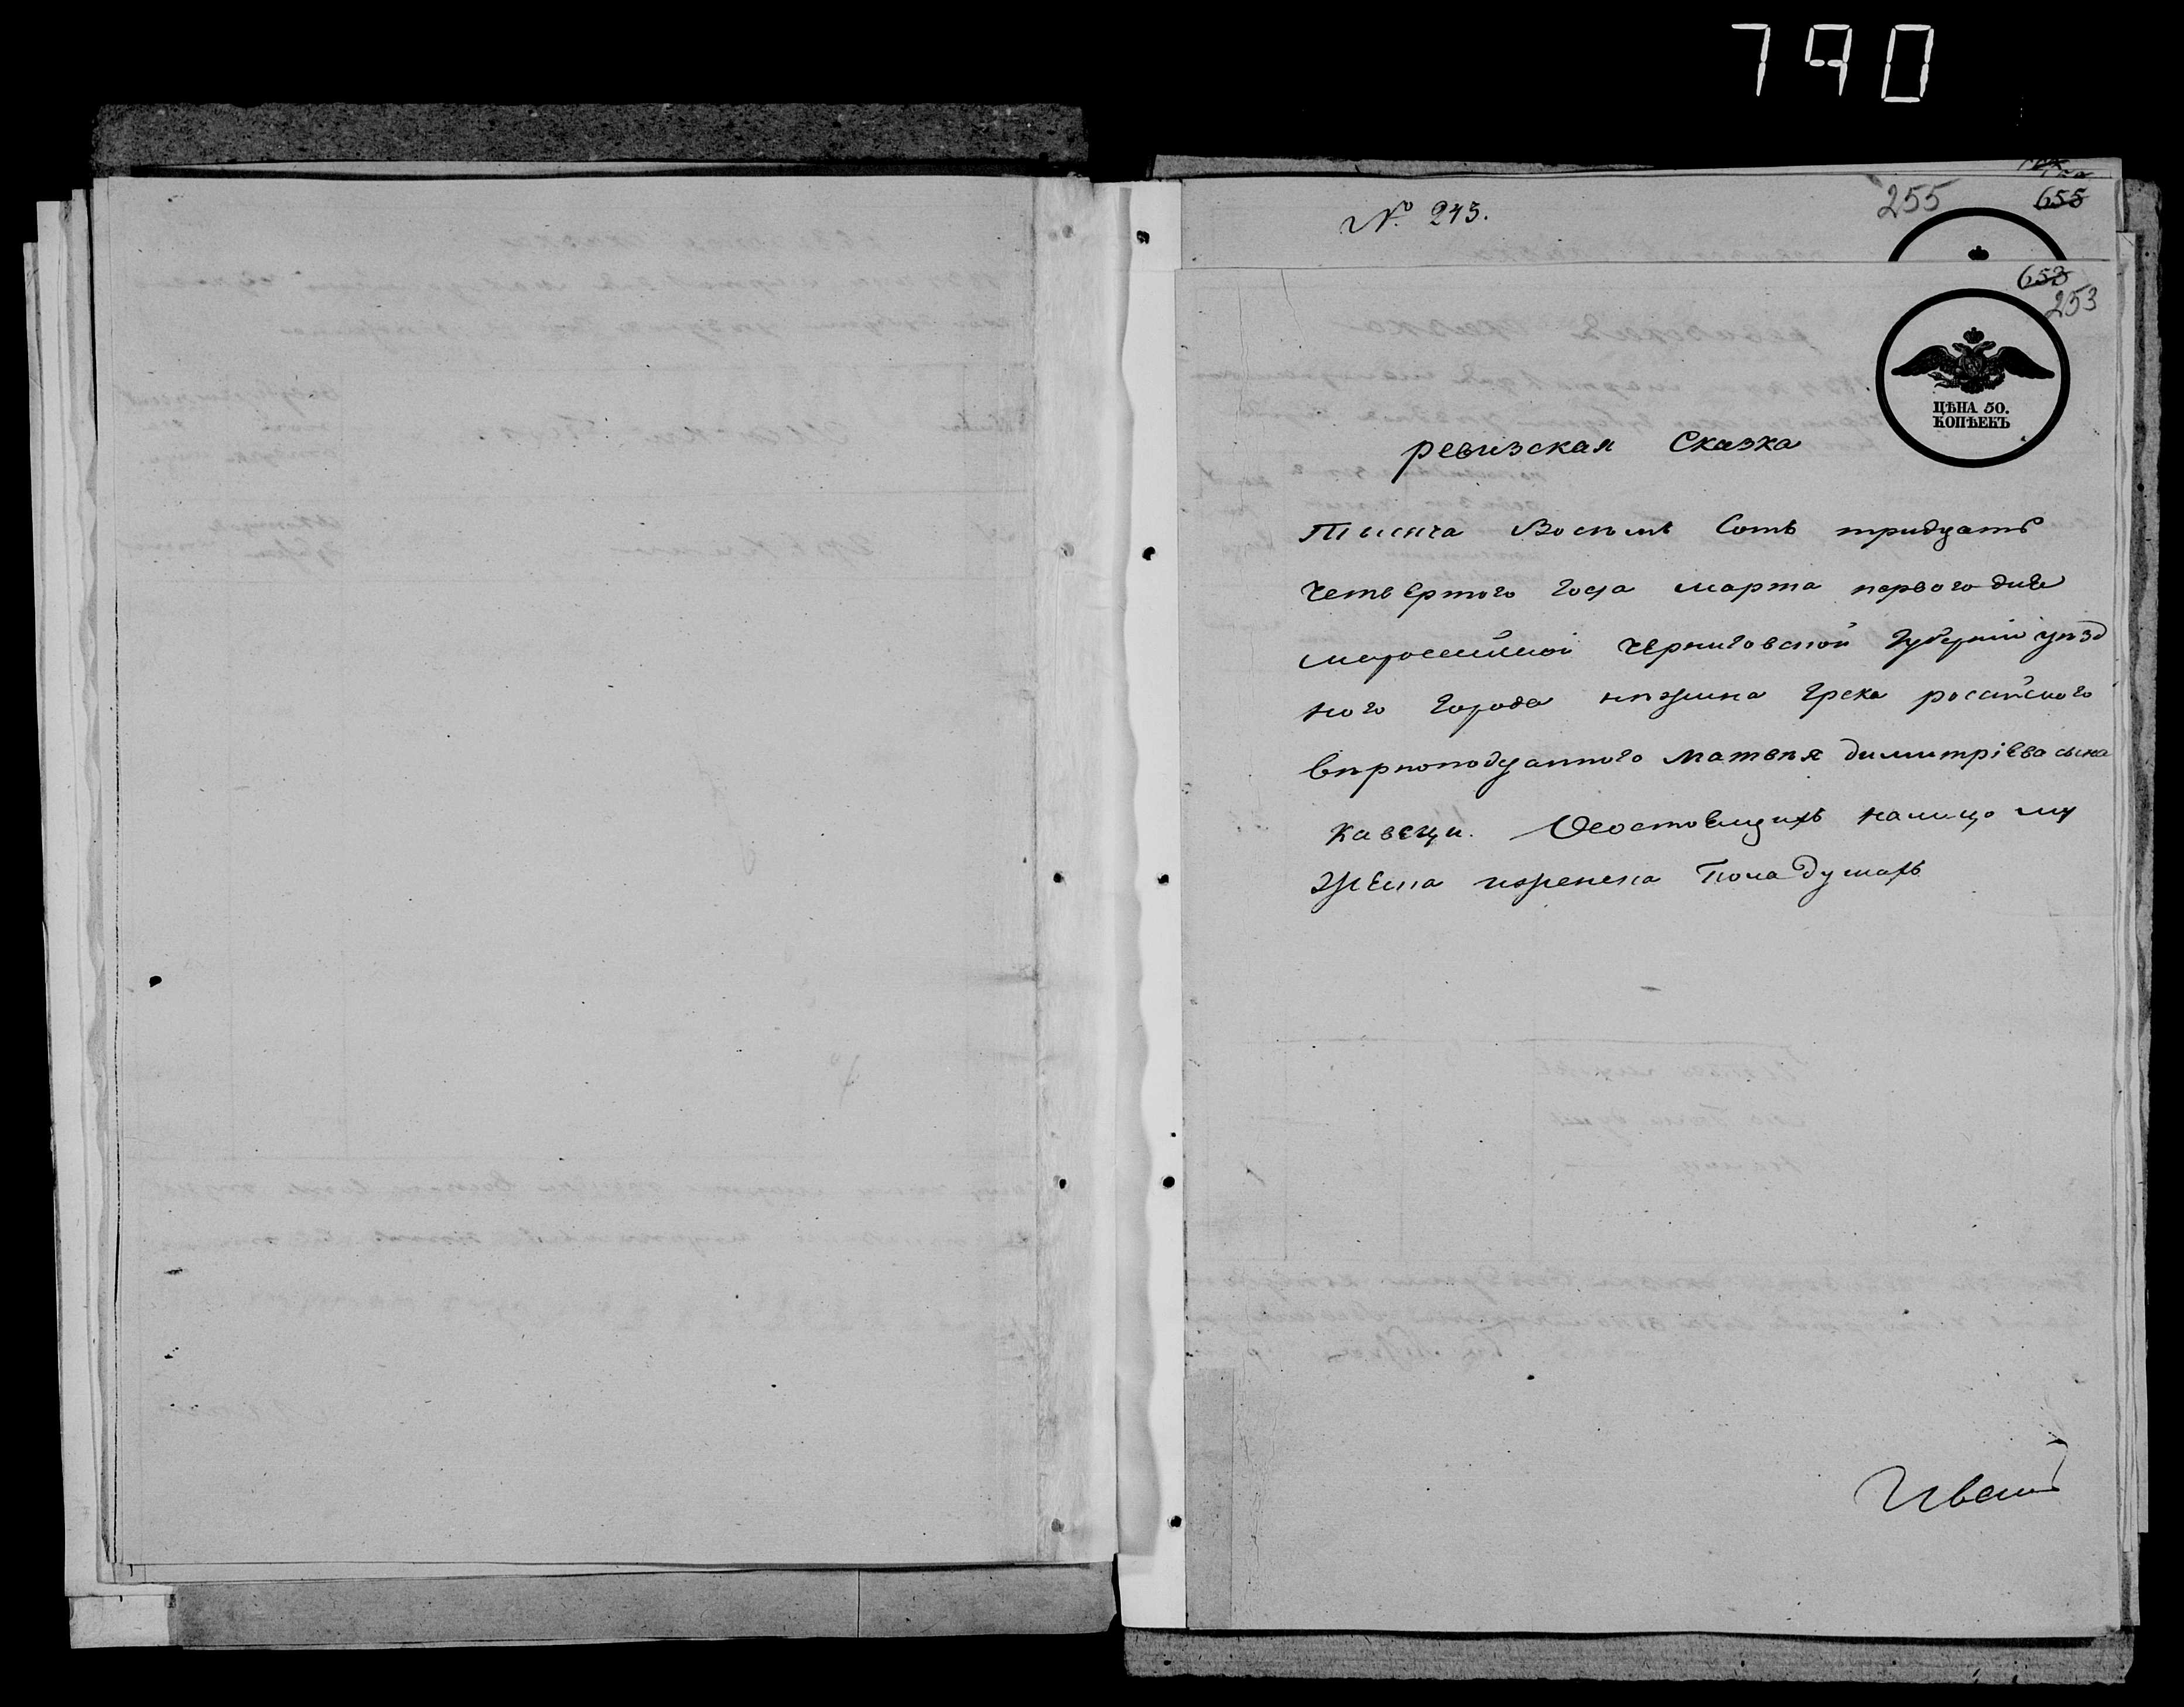 790
№ 243.
255
655
653
253
ЦѢНА 50.
КОПѢЕКЪ
ревизская Сказка
Тысяча Восемь Сотъ тридцать
четвертого года марта первого дня
малороссийской черниговской Губернии уѣзд
ного города нѣжина Грека российского
вѣрноподданного Матвѣя димитрієва сына
Кавеци. О состоящихъ налицо му
жеска иженска пола душахъ